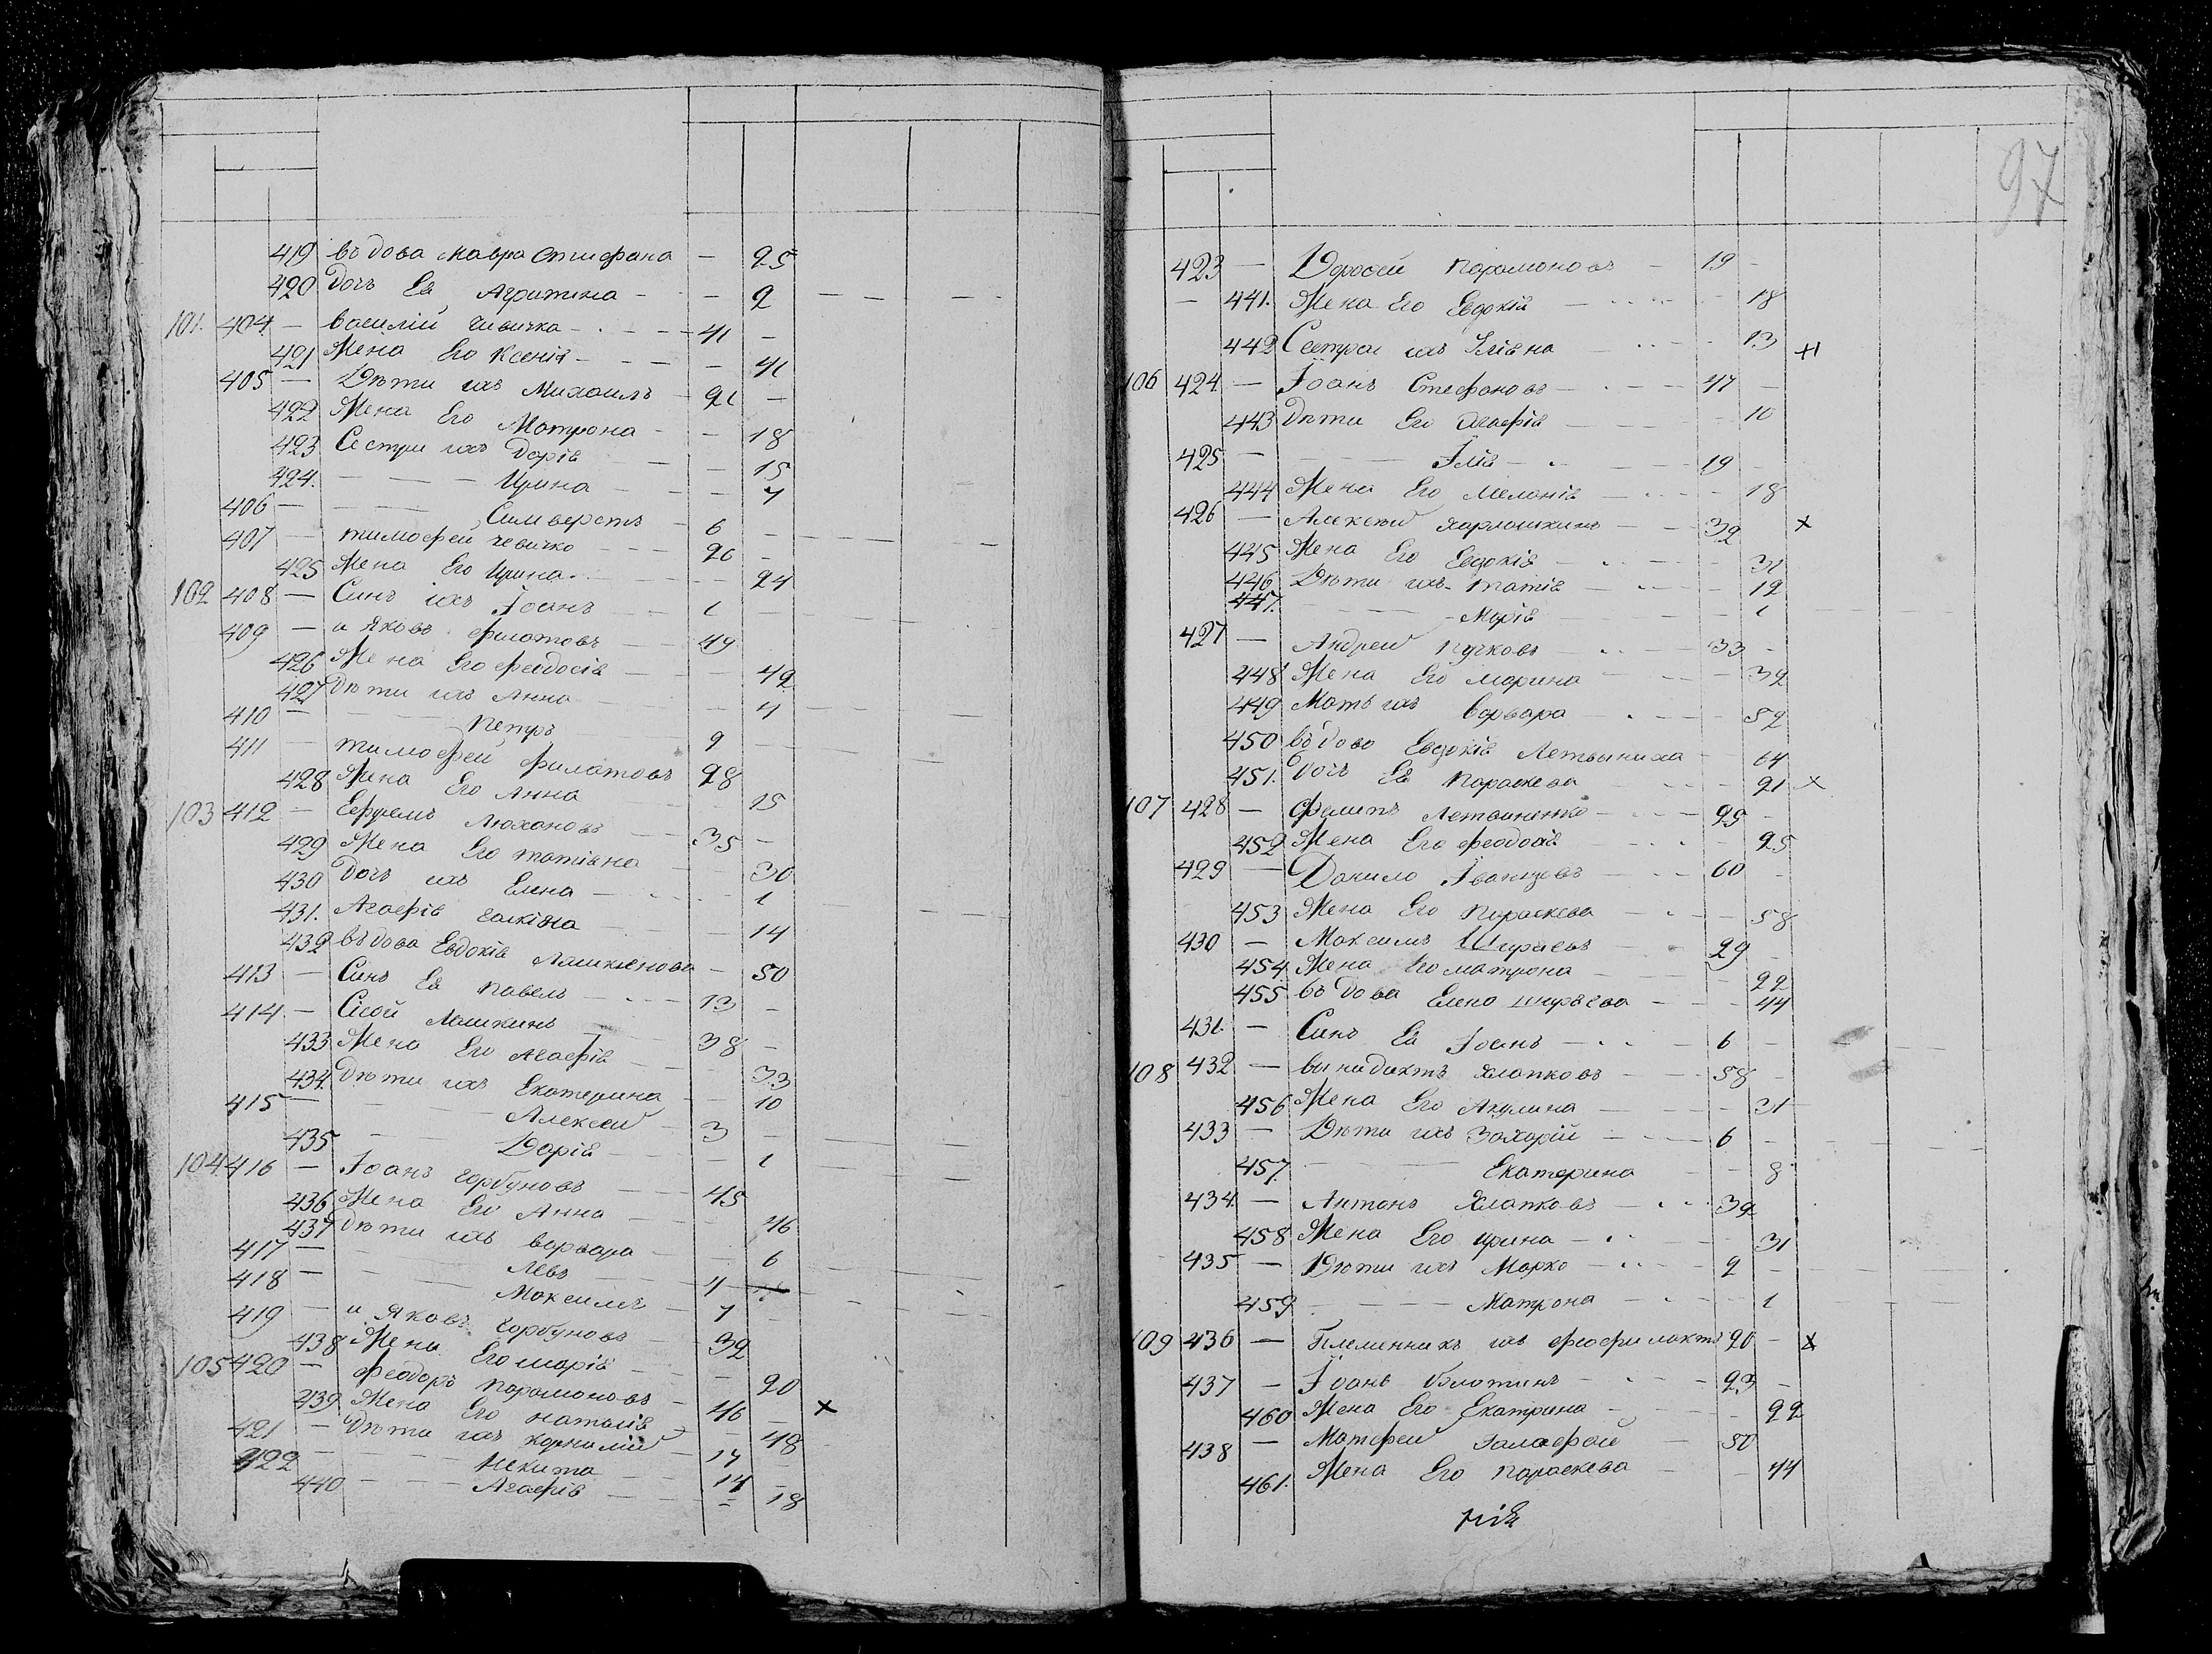 419 въдова мавра Стефана - 25
420 Дочь Ея Агрипина - - 2
101. 404 - Василий Чивичка - 41 -
421 Жена Его Ксенія - - 41
405 - Дѣти ихъ Михаилъ - 21 -
422 Жена Его Матрона - - 18
423 Сестри ихъ Дарія - 15
424. - - - Ирина - - 7
406 - - Силверстъ - 6 -
407 - тимофей чевичко - 26 -
425 Жена Его Ирина - - 24
102 408 - Синъ ихъ Іоанъ - 1 -
409 - и Яковъ филатовъ - 49
426 Жена Его феѡдосія - - 42
427 Дѣти ихъ Анна - - 4
410 - - Петръ 9
411 - тимофей филатовъ 28
428 Жена Его Анна 25
103 412 - Ефремъ Люхановъ - 35 -
429 Жена Его татіяна - 30
430 Дочь ихъ Елена - 1
431. Агафія - 14
432 въдова Евдокія Ляшкенова - 50
413 - Синъ Ея павелъ - 13 -
414 - Сісой Ляшкинъ 38 -
433 Жена Его Агафія - 33
434 Дѣти ихъ Екатерина - 10
415 - - Алексей - 3 -
435 - - Дарія - - 1
104 416 - Іоанъ Горбуновъ - 45
436 Жена Его Анна - 46
437 Дѣти ихъ варвара - 6
417 - - Левъ - 4
418 - - Максимъ - 7 -
419 - и Яковъ Горбуновъ - 32
438 Жена Его марія - - 20
105 420 - Феодоръ Парамоновъ - 46 - x
439 Жена Его наталія - 48
421 - Дѣти ихъ корнилій - 17
422 - - Никита - 14 -
440 - - Агафія - - 18
97
423 - Дорофей парамоновъ - 19 -
- 441. Жена Его Евдокія - 18
442 Сестра ихъ Улiяна - 13 x
106 424 - Іоанъ Стефановъ - 47 -
443 Дѣти Его Агафія - 10
425 - - Ілія - 19 -
444 Жена Его Меланія - 18
426 - Алексей харлашкинъ - 32 x
445 Жена Его Евдокія - 31
446 Дѣти ихъ татія - 12
447. - - Марія - 1
427 - Андрей пучковъ - 33 -
448 Жена Его марина - 32
449 Мать ихъ варвара - 52
450 въдова Евдокія Летвыниха - 64
451. Дочь Ея параскева - 21 x
107 428 - филипъ Летвиненко - 25 -
452 Жена Его феодосія - 25
429 - Данило Іванцовъ - 60 -
453 Жена Его параскева - 58
430 - Максимъ Шкураевъ - 29 -
454 Жена Его матрона - 22
455 въдова Елена шкураева - 44
431. - Синъ Ея Іоанъ - 6 -
108 432 - Винидиктъ хлапковъ - 58 -
456 Жена Его Акулина - 31
433 - Дѣти ихъ Захарій - 6 -
457. - - Екатерина - 8
434. - Антонъ хлапковъ - 32
458 Жена Его ирина - 31
435 - Дѣти ихъ Марко - 2 -
459 - - Матрона - 1
109 436 - Племенникъ ихъ феофилактъ 20 - x
437 - Іоанъ Блотинъ - 23 -
460 Жена Его Екатрина - 22
438 - Матфей Галафай - 50
461. Жена Его параскева - 44